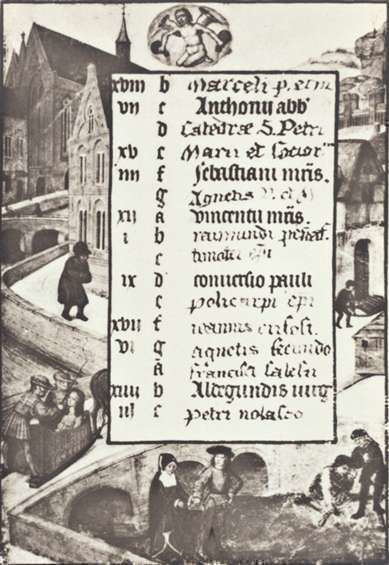 xviii b Marceli p. et m
vii c Anthonii abb
d Catedræ S. Petri
xv e Marii et Socior
iiii f Sebastiani m̄is.
g Agnetis V. et M
xii a vincentii m̄is.
i b raimundi
c timotei epi
ix d conversio pauli
e policarpi epi
xvii f ioannis
vi g agnetis secundo
a francisci salesii
xiiii b Aldegundis virg
iii c petri nolasco